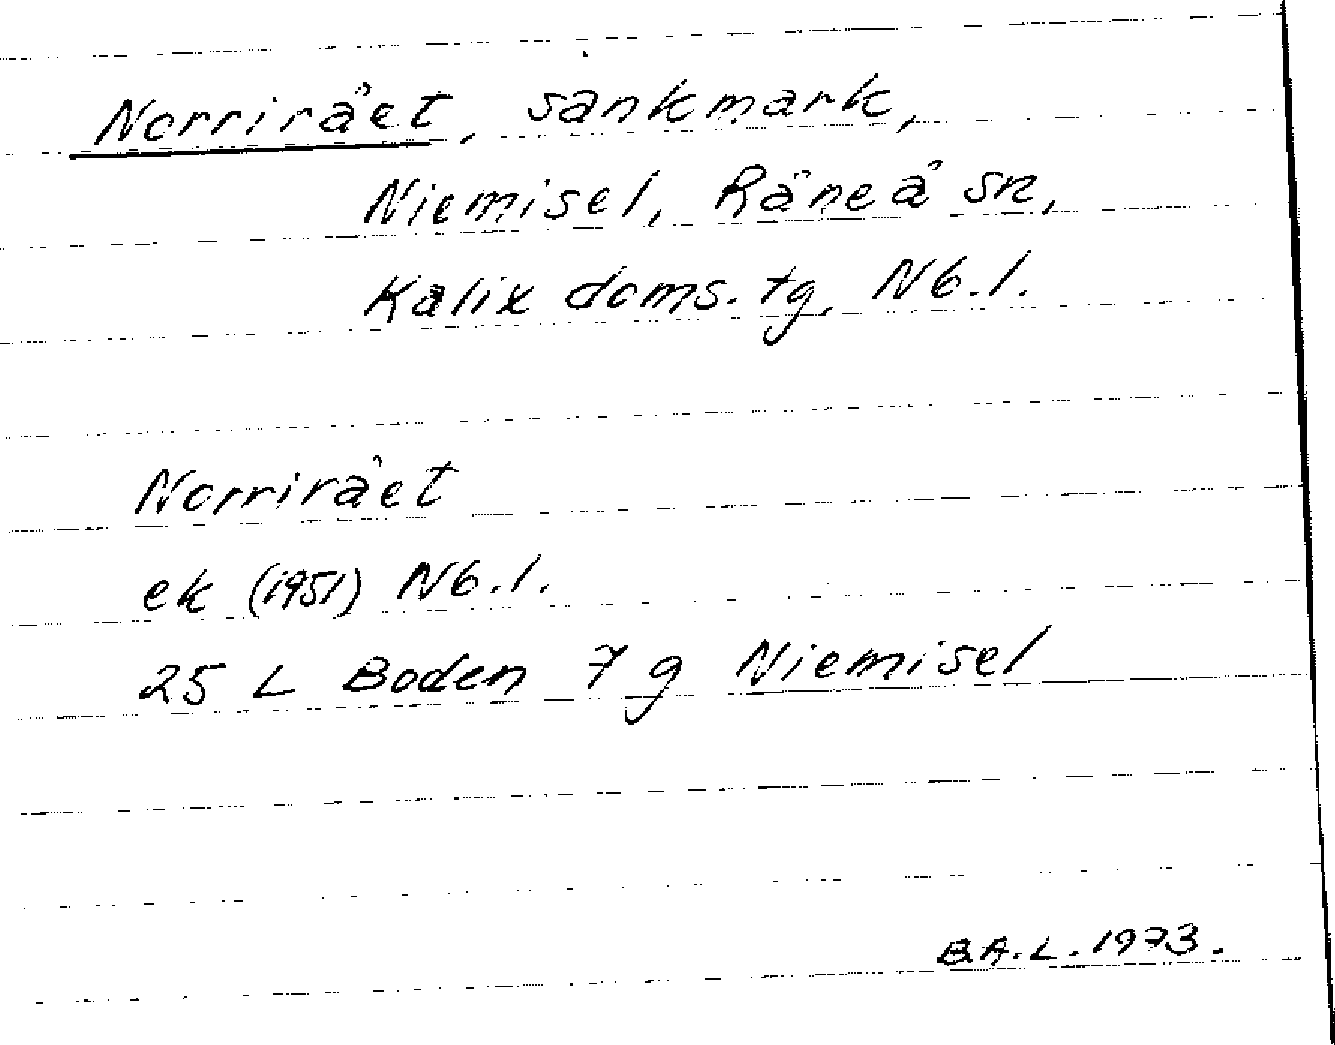 Norrirået, sankmark,
Niemisel, Råneå sn,
Kalix doms. tg, Nb.l.
Norrirået
ek (1951) Nb.l.
25 L Boden 7 g Niemisel
B.A.L. 1973.